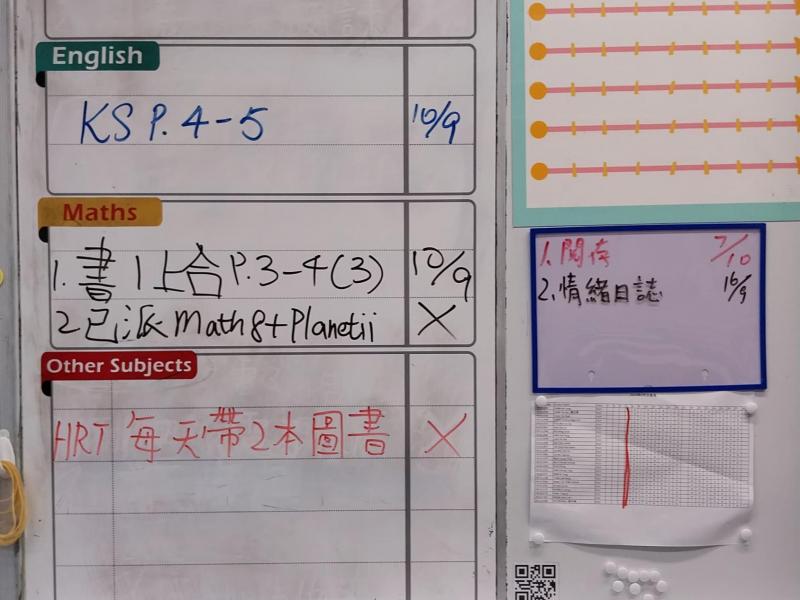 English
KS P. 4-5 10/9
Maths
1. 書1上合 P.3-4(3) 10/9
2 已派 Math 8+ Planetii X
Other Subjects
HRT 每天帶2本圖書 X
1. 閱 7/10
2. 情緒日誌 16/9